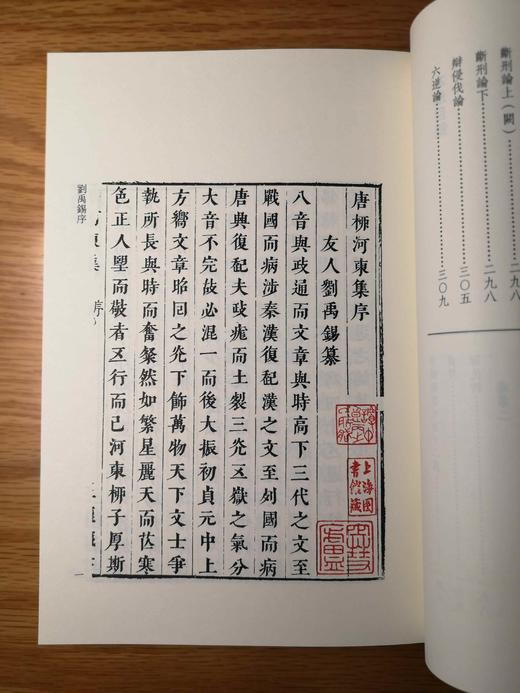 斷刑論上（闕）……二九八
斷刑論下……二九八
辯侵伐論……三〇五
六逆論……三〇九
唐栁河東集序
友人劉禹錫纂
八音與政通而文章與時高下三代之文至
戰國而病涉秦漢復起漢之文至列國而病
唐興復起夫政龐而土裂三光五嶽之氣分
大音不完故必混一而後大振初貞元中上
方嚮文章昭回之光下飾萬物天下文士爭
執所長與時而奮粲然如繁星麗天而芒寒
色正人朢而敬者五行而已河東栁子厚斯
東集 序
上海圖書館藏
劉禹錫序
一